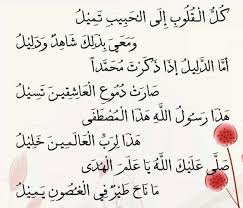 كُلُّ الْقُلُوبِ إِلَى الْحَبِيبِ تَمِيْلُ
وَمَعِيَ بِذَلِكَ شَاهِدٌ وَدَلِيْلُ
أَمَّا الدَّلِيْلُ إِذَا ذَكَرْتَ مُحَمَّداً
صَارَتْ دُمُوعُ الْعَاشِقِينَ تَسِيْلُ
هَذَا رَسُولُ اللَّهِ هَذَا الْمُصْطَفَى
هَذَا لِرَبِّ الْعَالَمِينَ خَلِيْلُ
صَلَّى عَلَيْكَ اللَّهُ يَا عَلَمَ الْهُدَى
مَا نَاحَ طَيْرٌ فِي الْغُصُونِ يَمِيْلُ